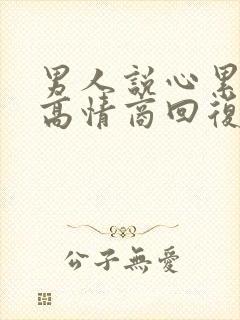 男人說心累
高情商回復
公子無愛